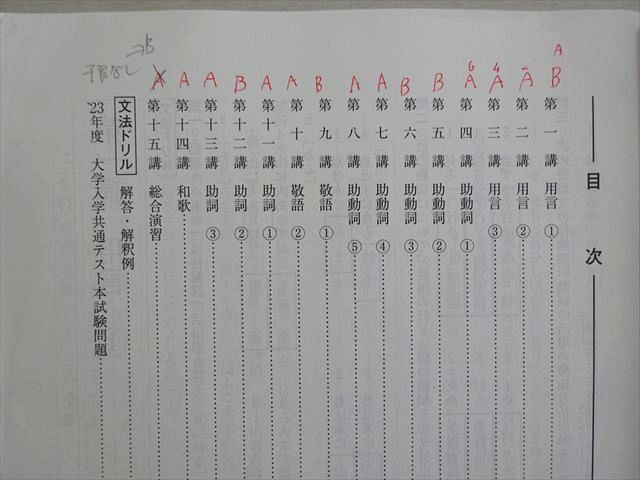 目次
B A
第一講 用言 ①
A
第二講 用言 ②
A
第三講 用言 ③
A
第四講 助動詞 ①
B
第五講 助動詞 ②
B
第六講 助動詞 ③
A
第七講 助動詞 ④
A
第八講 助動詞 ⑤
B
第九講 敬語 ①
A
第十講 敬語 ②
A
第十一講 助詞 ①
B
第十二講 助詞 ②
A
第十三講 助詞 ③
A
第十四講 和歌
A
第十五講 総合演習
予習なし
文法ドリル 解答・解釈例
'23年度 大学入学共通テスト本試験問題